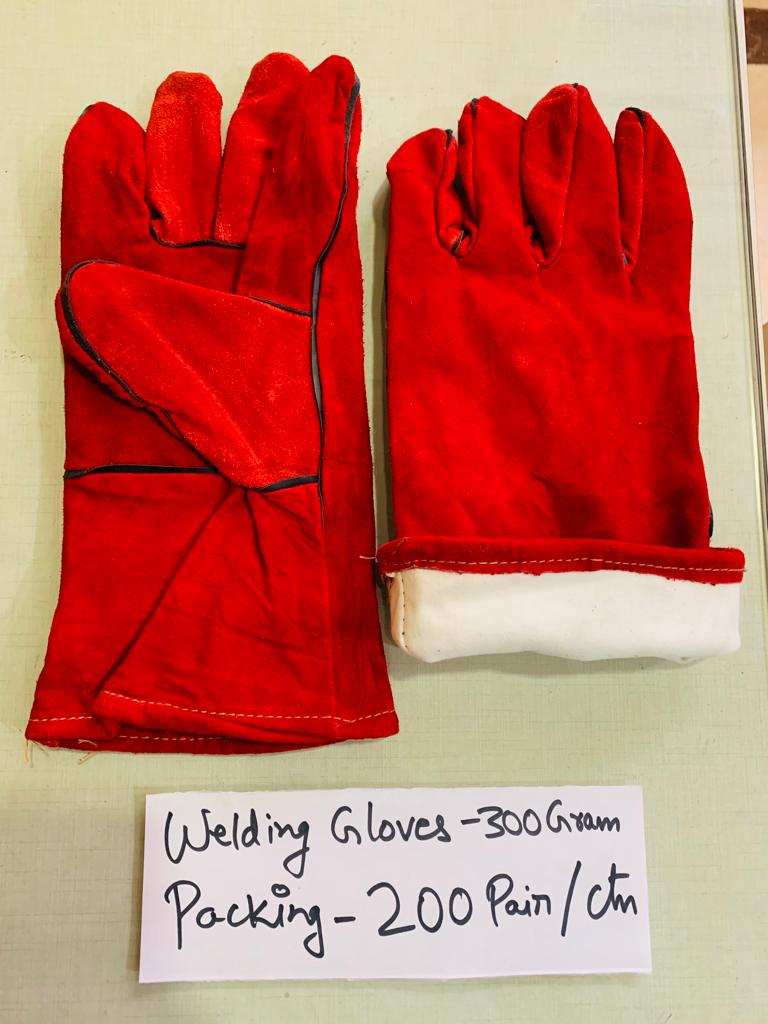 Welding Gloves - 300 Gram
Packing - 200 Pair / ctn